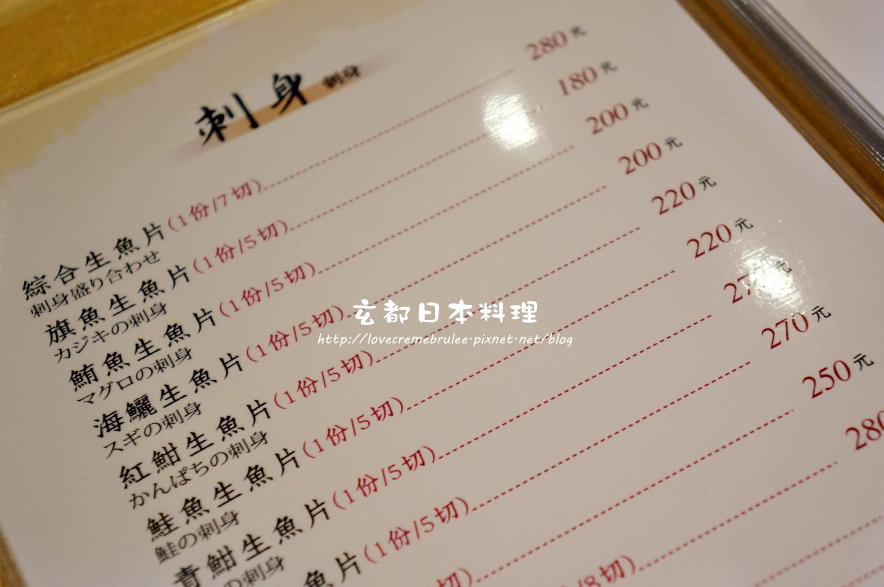 刺身 刺身
綜合生魚片(1份/7切) 280元
刺身盛り合わせ
旗魚生魚片(1份/5切) 180元
カジキの刺身
鮪魚生魚片(1份/5切) 200元
マグロの刺身
海鱺生魚片(1份/5切) 200元
スギの刺身
紅魽生魚片(1份/5切) 220元
かんぱちの刺身
鮭魚生魚片(1份/5切) 220元
鮭の刺身
青魽生魚片(1份/5切) 270元
の刺身
魚片(1份/5切) 270元
250元
/8切) 280
玄都日本料理
http://lovecremebrulee.pixnet.net/blog